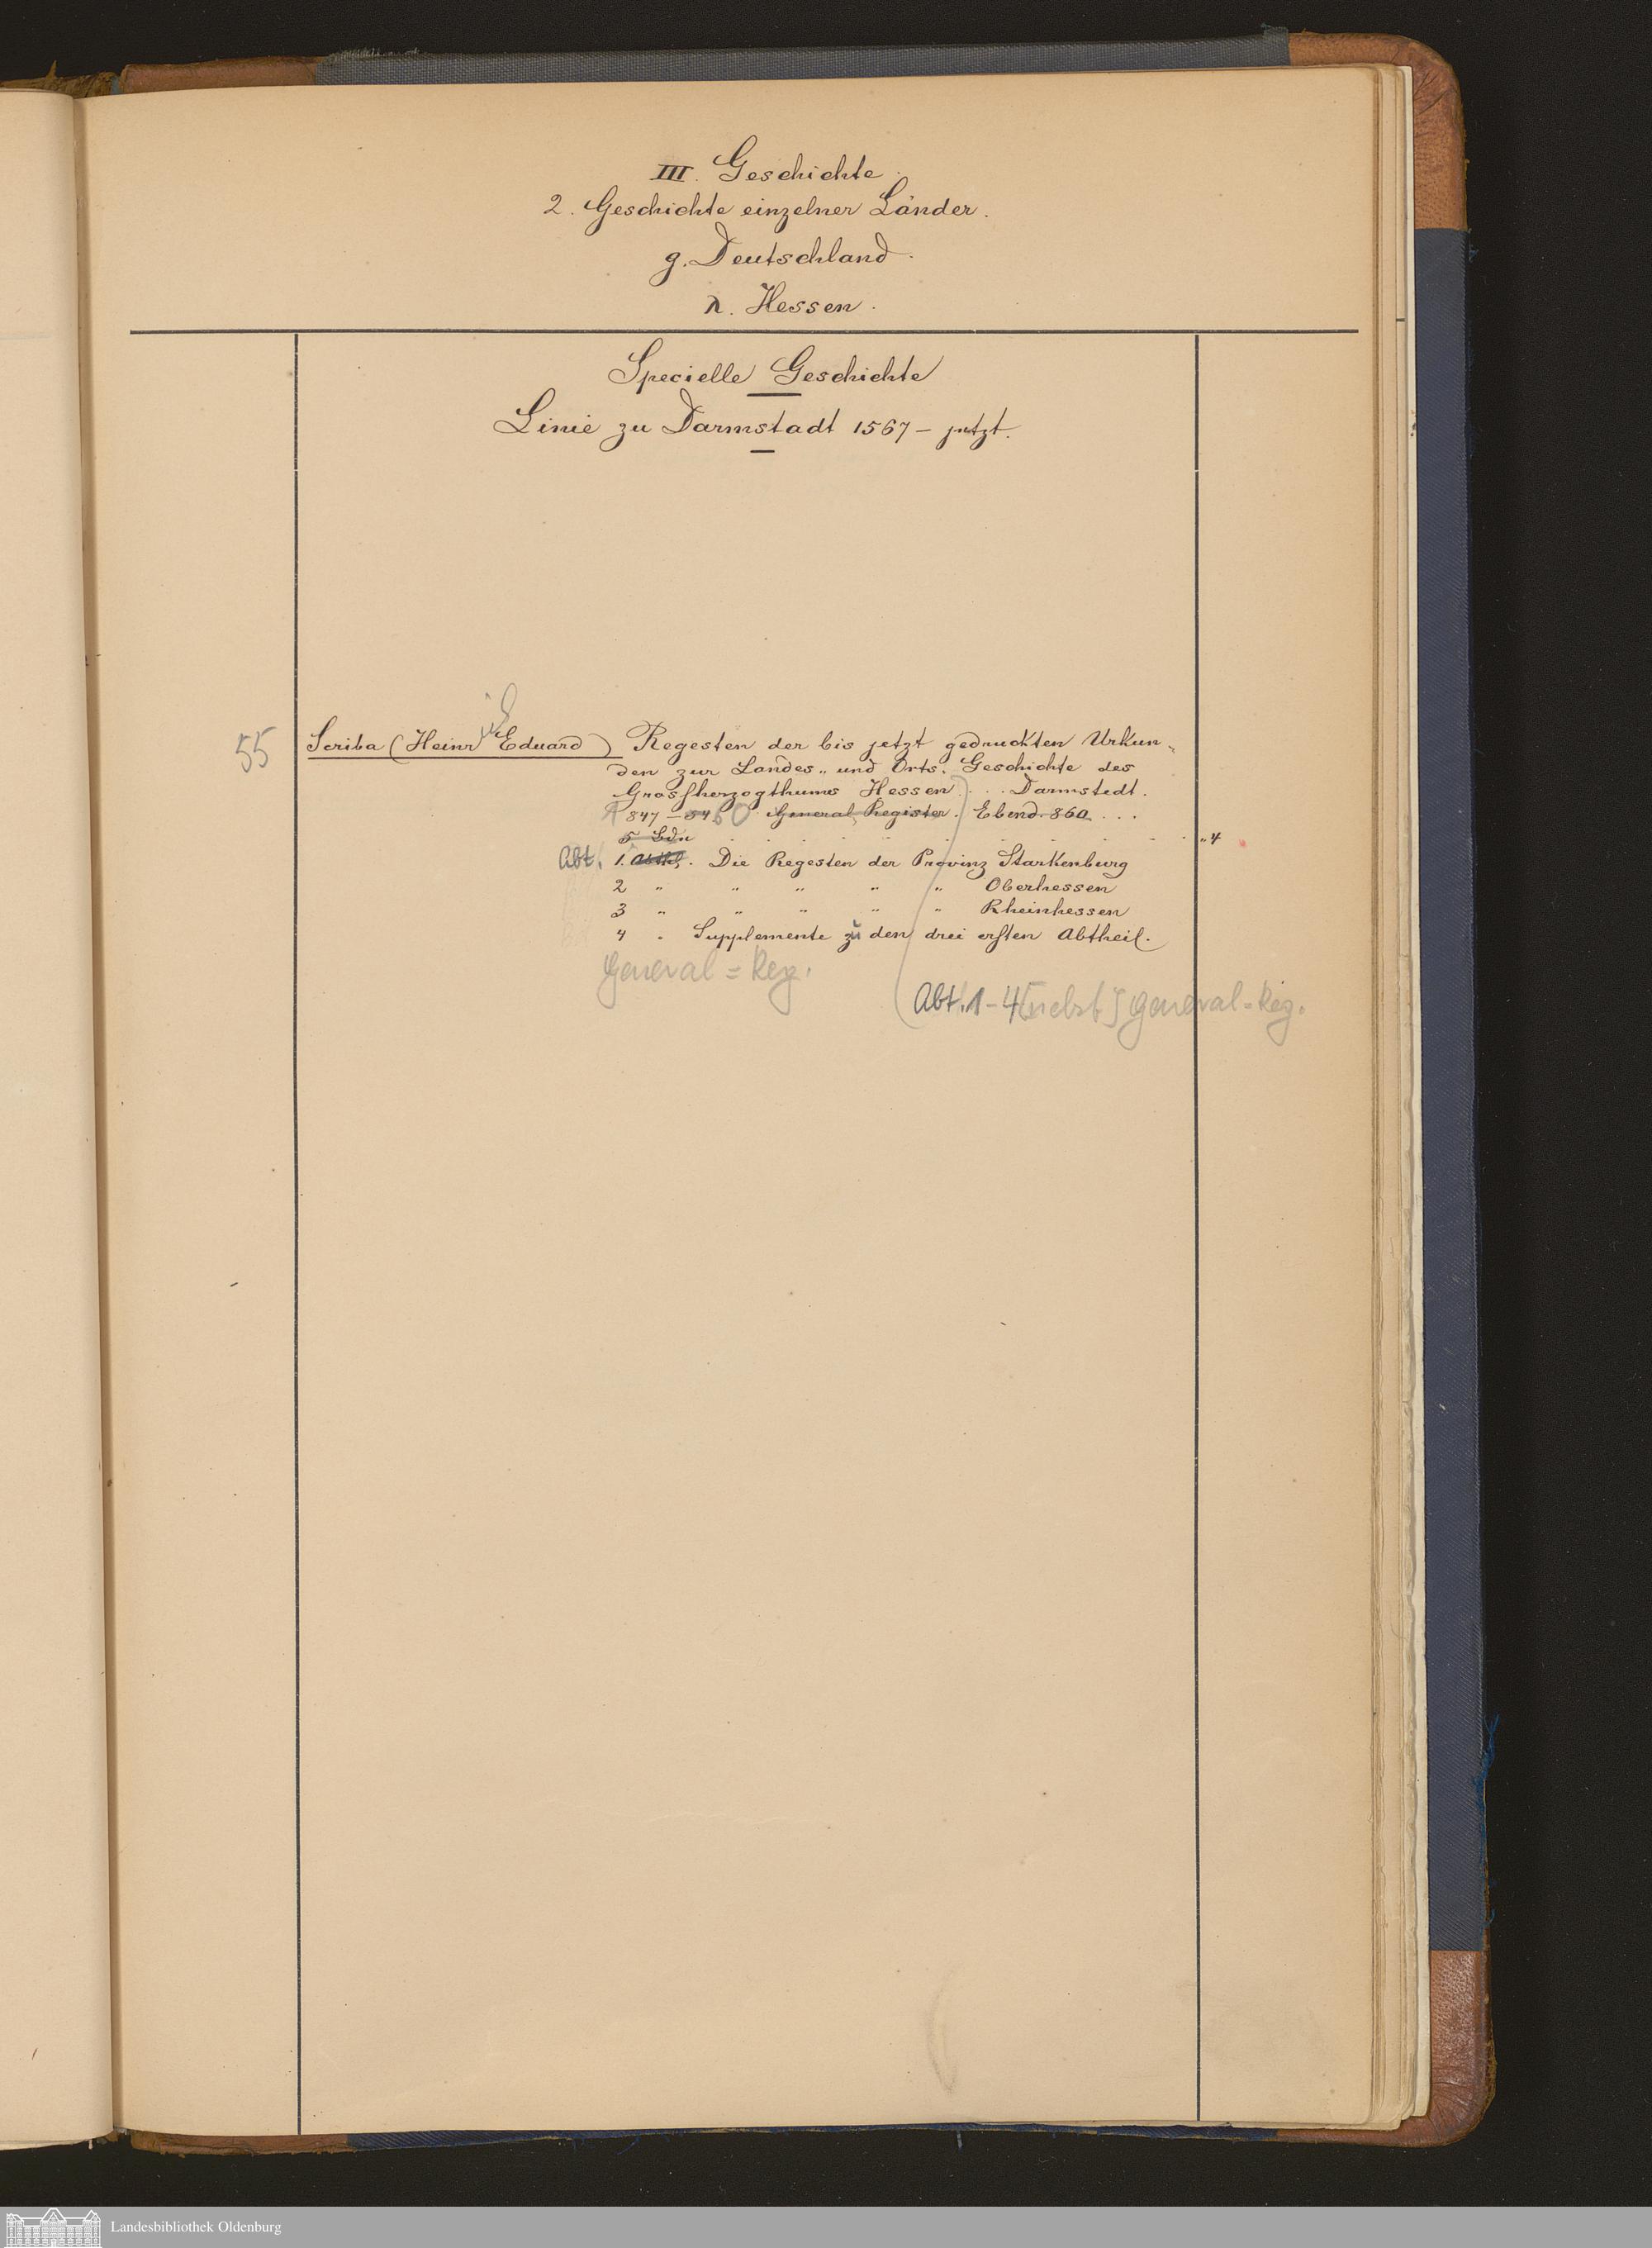 III. Geschichte.
2. Geschichte einzelner Länder.
g. Deutschland.
λ. Hessen.
Specielle Geschichte
Linie zu Darmstadt 1567 – jetzt.
55 Scriba (Heinrich Eduard) Regesten der bis jetzt gedruckten Urkun-
den zur Landes- und Orts-Geschichte des
Grossherzogthums Hessen. . . Darmstadt.
1847–5460 General Register. Ebend. 860 . . .
5 Bde . . . . . . . . . . "4
Abt. 1. Abthl. Die Regesten der Provinz Starkenburg
2 " " " " " Oberhessen
3 " " " " " Rheinhessen
4 " Supplemente zu den drei ersten Abtheil.
General=Reg.
Abt. 1–4 [nebst] General=Reg.
Landesbibliothek Oldenburg